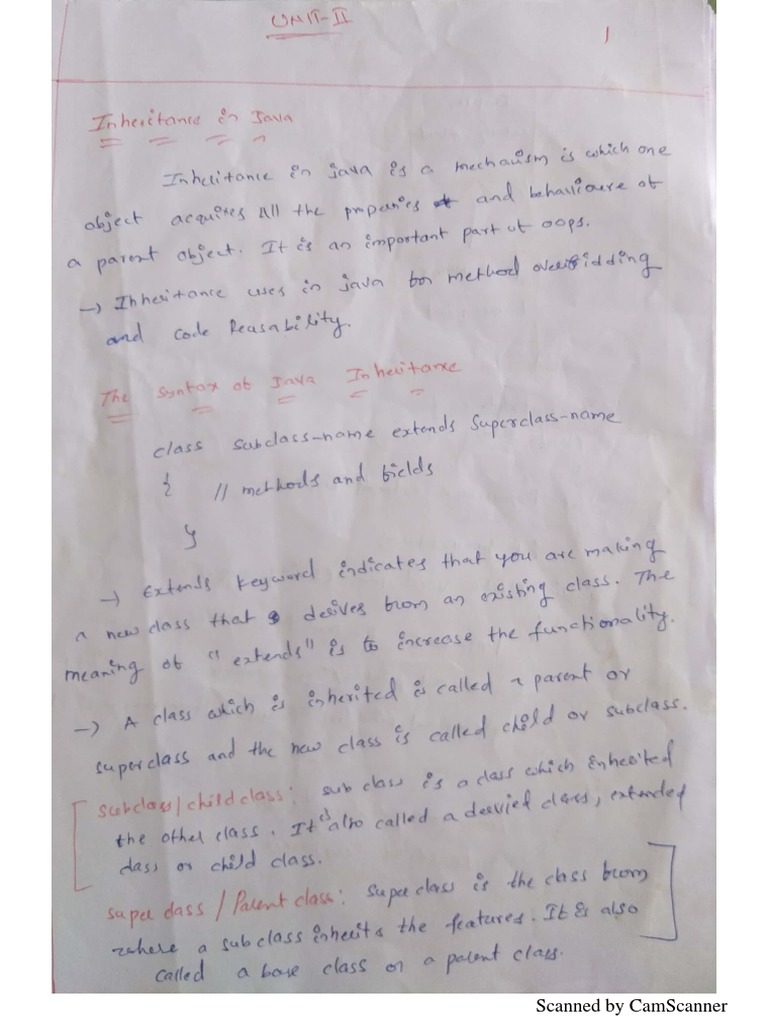 UNIT-II
1
Inheritance in Java
Inheritance in java is a mechanism is which one
object acquires All the properties and behavioure of
a parent object. It is an important part of oops.
→ Inheritance uses in java for method overridding
and code Reasability.
The Syntax of Java Inheritance
class Subclass-name extends Superclass-name
{ // methods and fields
}
→ Extends keyword indicates that you are making
a new class that derives from an existing class. The
meaning of "extends" is to increase the functionality.
→ A class which is inherited is called a parent or
superclass and the new class is called child or subclass.
Subclass/child class: sub class is a class which inherited
the other class. It is also called a desvied class, extended
class or child class.
Super class / Parent class: Super class is the class from
where a subclass inherits the features. It is also
called a base class or a parent class.
Scanned by CamScanner